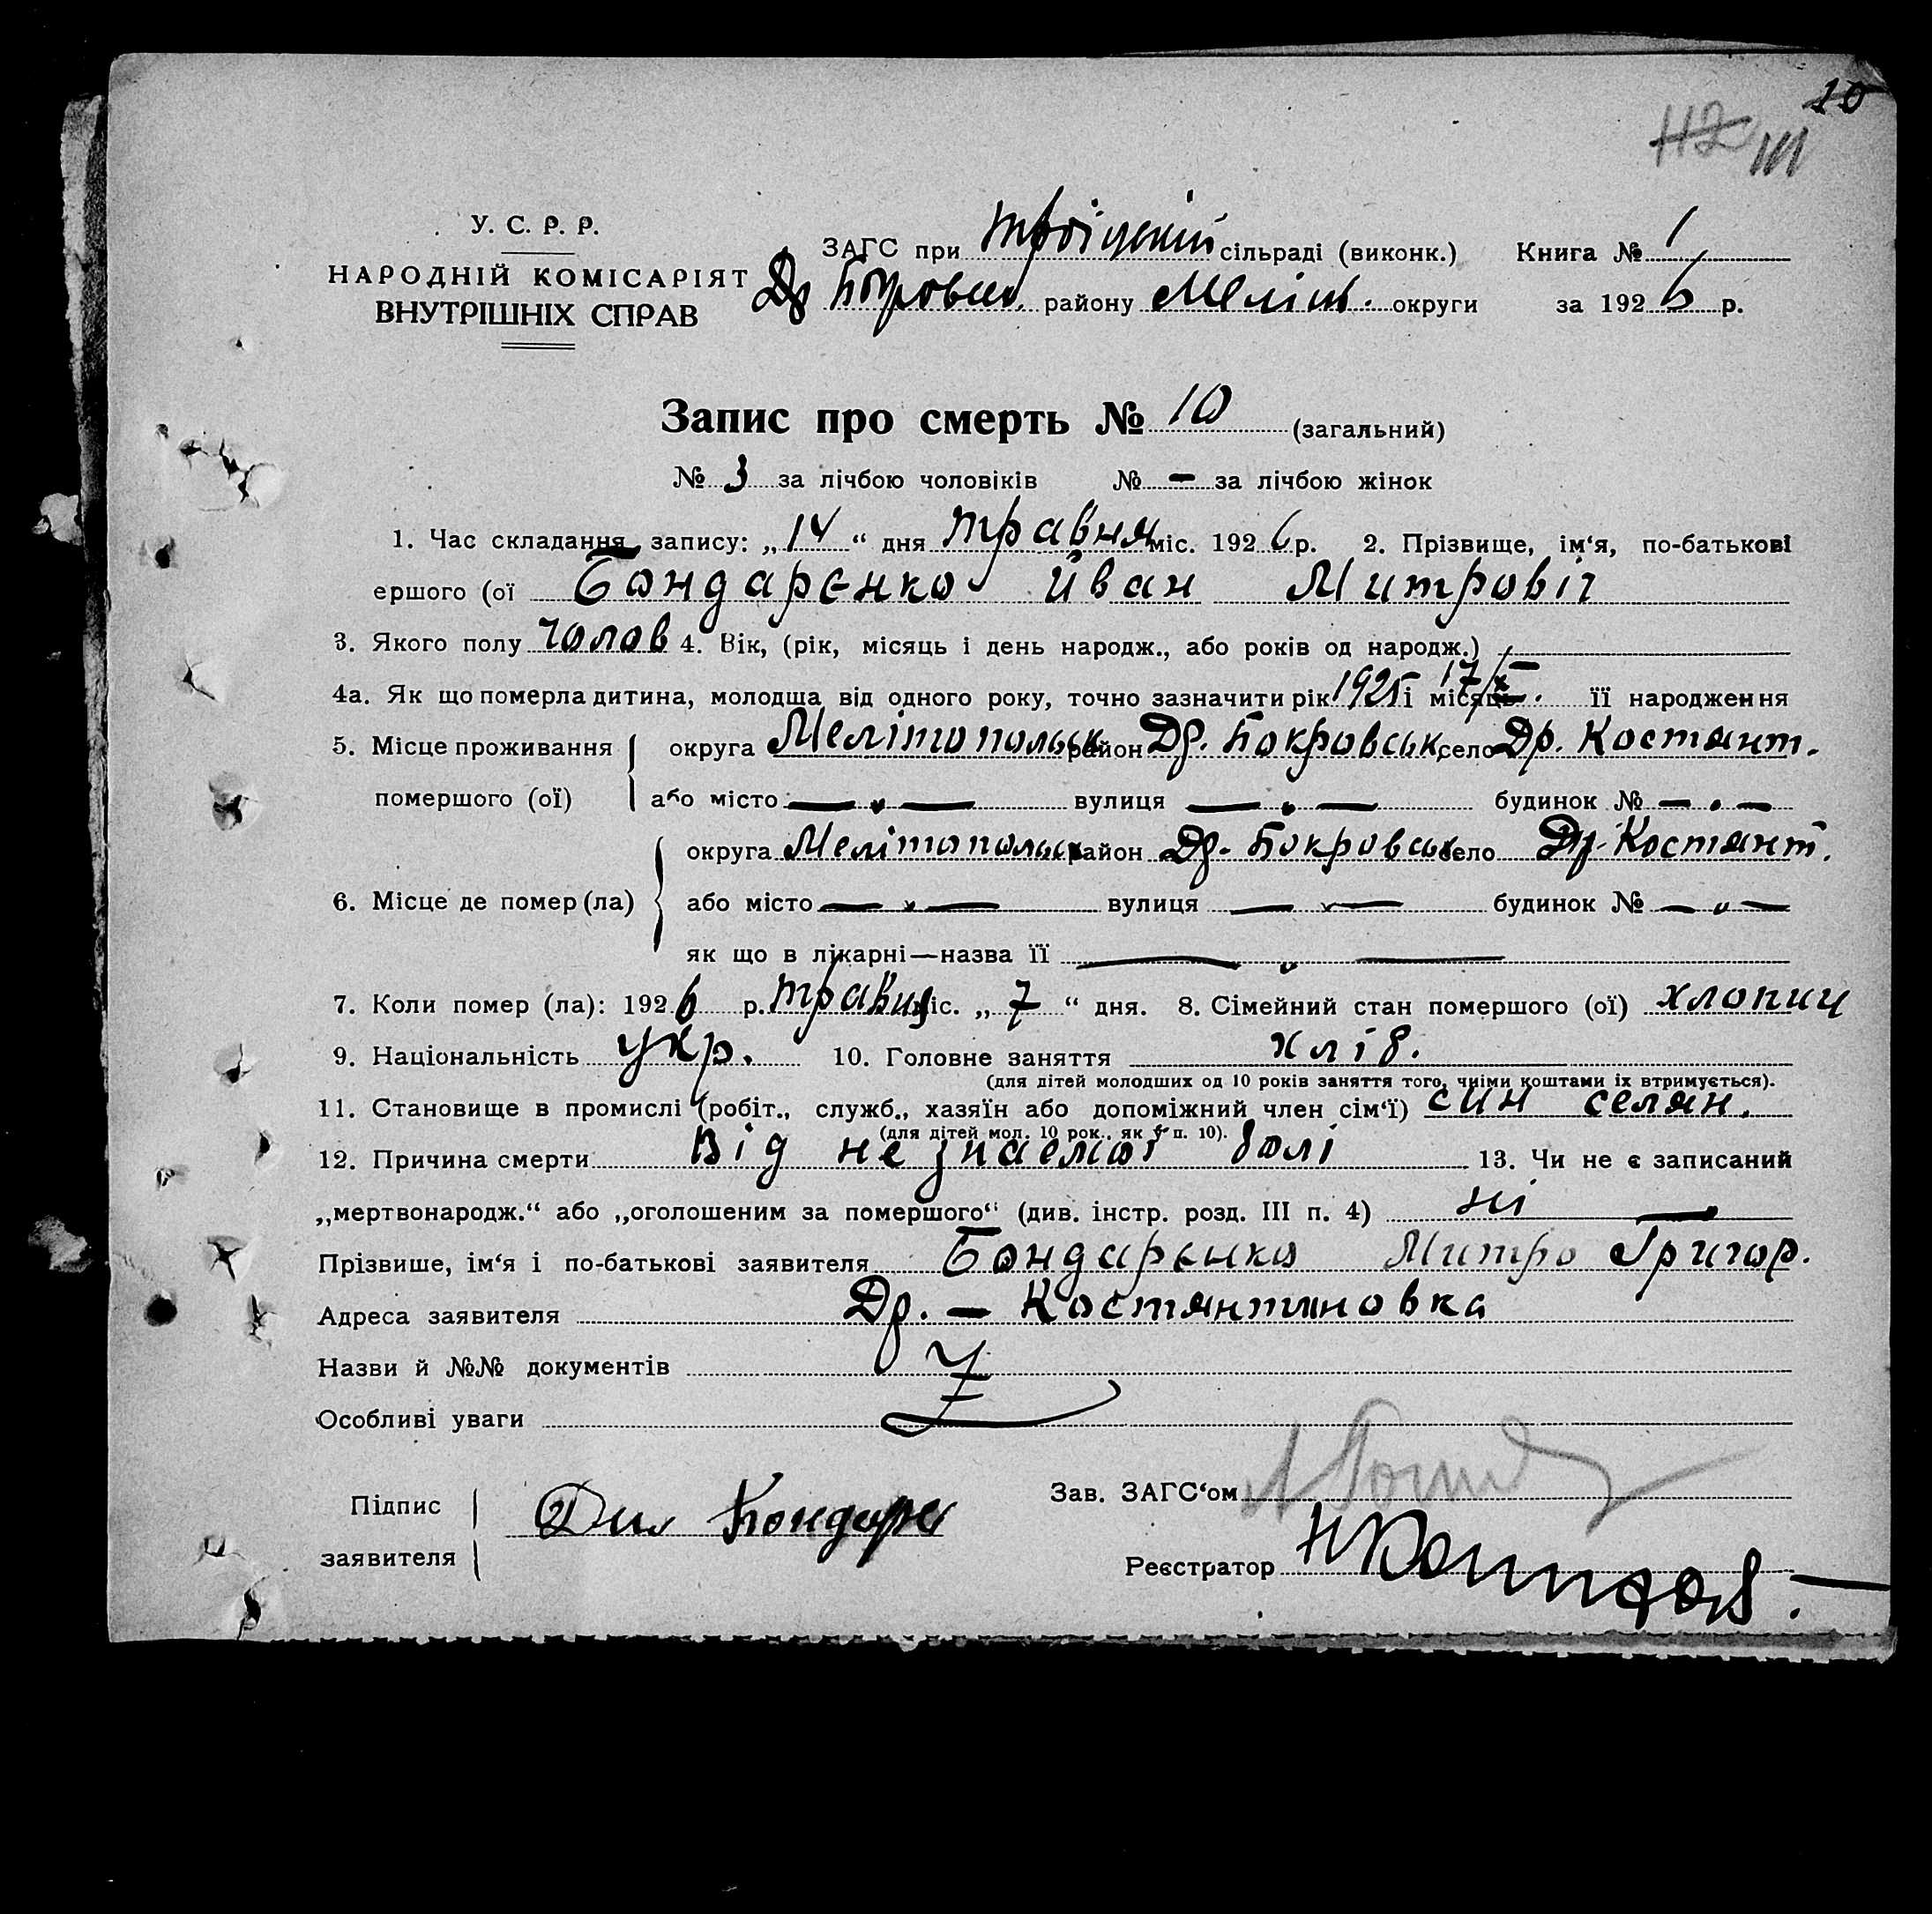 10
112 111
У. С. Р. Р.
НАРОДНІЙ КОМІСАРІЯТ
ВНУТРІШНІХ СПРАВ
ЗАГС при Троіцкій сільраді (виконк.) Книга № 1
Др Покровськ. району Меліт. округи за 1926 р.
Запис про смерть № 10 (загальний)
№ 3 за лічбою чоловіків № — за лічбою жінок
1. Час складання запису: „14“ дня травня міс. 1926 р. 2. Прізвище, ім‘я, по-батькові
ершого (ої Бондарєнко Йван Митровіч
3. Якого полу чолов 4. Вік, (рік, місяць і день народж., або років од народж.)
4а. Як що померла дитина, молодша від одного року, точно зазначити рік 1925 і місяць 17/X. її народження
5. Місце проживання помершого (ої) округа Мелітопольськ район Др. Покровськ, село Др. Костянт.
або місто — „ — вулиця — „ — будинок № — „ —
6. Місце де помер (ла) округа Мелітопольськ район Др. Покровськ село Др. Костянт.
або місто — „ — вулиця — „ — будинок № — „ —
як що в лікарні—назва її — „ —
7. Коли помер (ла): 1926 р. травня міс. „7“ дня. 8. Сімейний стан помершого (ої) хлопиц
9. Національність укр. 10. Головне заняття хліб.
(для дітей молодших од 10 років заняття того, чиїми коштами їх втримується).
11. Становище в промислі (робіт., служб., хазяїн або допоміжний член сім‘ї) син селян.
(для дітей мол. 10 рок., як в п. 10).
12. Причина смерти Від не знаемоі болі 13. Чи не є записаний
„мертвонародж.“ або „оголошеним за помершого“ (див. інстр. розд. III п. 4) ні —
Прізвише, ім‘я і по-батькові заявителя Бондарєнко Митро Григор.
Адреса заявителя Др. — Костянтиновка
Назви й №№ документів
Особливі уваги
Підпис заявителя
Зав. ЗАГС‘ом
Реєстратор